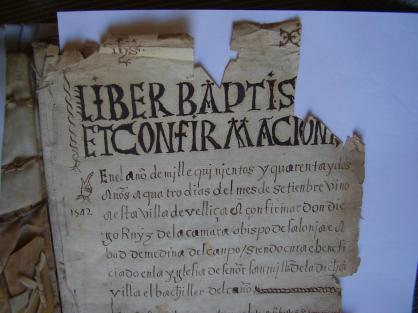 Ihs
LIBER BAPTIS
ET CONFIRMACION
En el año de mill e quinientos y quarenta y dos
años a quatro dias del mes de setienbre vino
1542
a esta villa de velliça a confirmar don die
go Ruyz de la camara obispo de salona e a
bad de medina del canpo / siendo cura e benefi
ciado en la yglesia de señor san millan de la dicha
villa el bachiller del caño